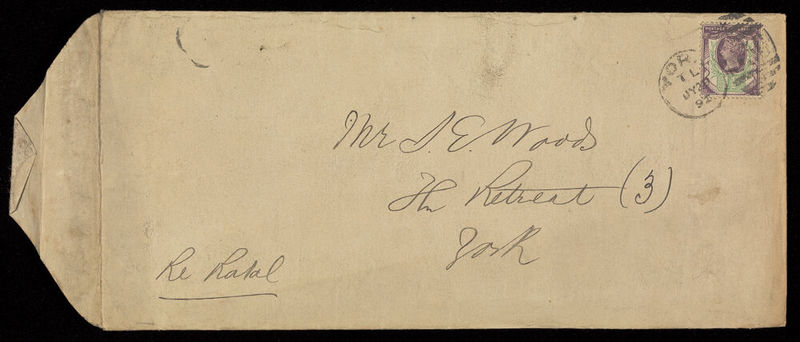 YORK
TL
JY 20
92
Mr S. E. Woods
The Retreat (3)
York
Re Rakal